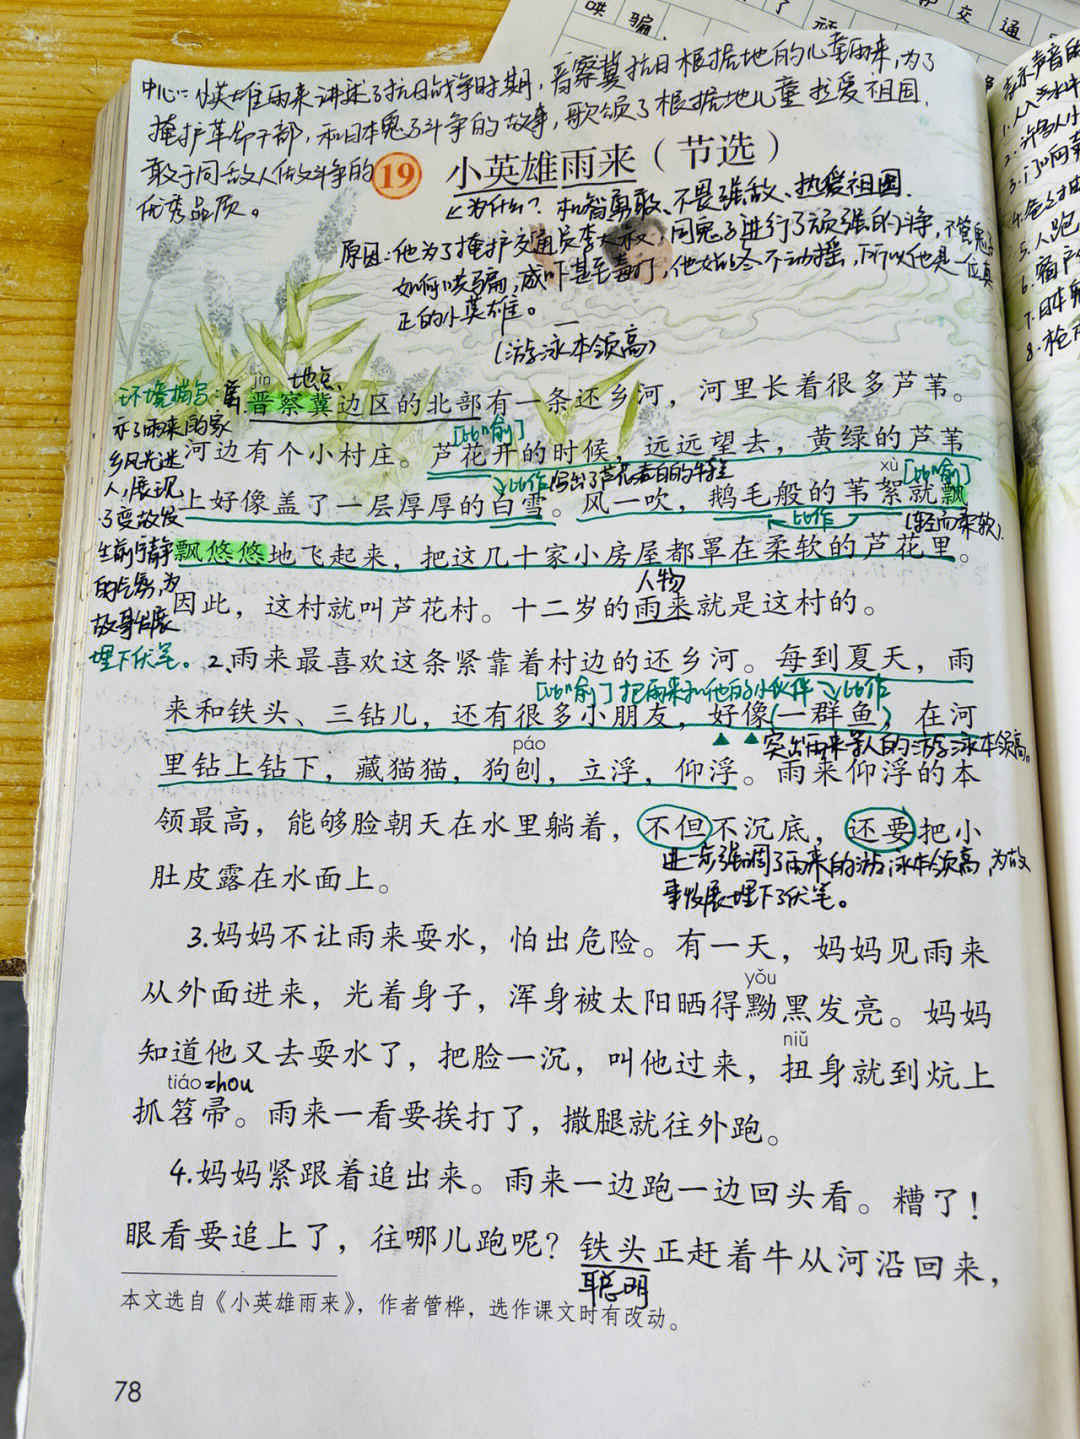 哄 骗
交 通
中心:小英雄雨来讲述了抗日战争时期,晋察冀抗日根据地的儿童雨来,为了
掩护革命干部,和日本鬼子斗争的故事,歌颂了根据地儿童热爱祖国,
敢于同敌人做斗争的
优秀品质。
19 小英雄雨来(节选)
为什么?机智勇敢、不畏强敌、热爱祖国.
原因:他为了掩护交通员李大叔,同鬼子进行了顽强的斗争,不管鬼子
如何哄骗,威吓甚至毒打,他始终不动摇,所以他是一位真
正的小英雄。
(游泳本领高)
环境描写:
亦了雨来的家
乡风光迷
人,展现
了变故发
生前宁静
的气氛,为
故事发展
埋下伏笔。
jìn 地点
晋察冀边区的北部有一条还乡河,河里长着很多芦苇。
[比喻]
河边有个小村庄。芦花开的时候,远远望去,黄绿的芦苇
比作 写出了芦花着白的特征
xù [比喻]
上好像盖了一层厚厚的白雪。风一吹,鹅毛般的苇絮就飘
比作 (轻而柔软).
飘悠悠地飞起来,把这几十家小房屋都罩在柔软的芦花里。
人物
因此,这村就叫芦花村。十二岁的雨来就是这村的。
2.雨来最喜欢这条紧靠着村边的还乡河。每到夏天,雨
[比喻]把雨来和他的小伙伴比作
来和铁头、三钻儿,还有很多小朋友,好像(一群鱼),在河
突出雨来等人的游泳本领高。
páo
里钻上钻下,藏猫猫,狗刨,立浮,仰浮。雨来仰浮的本
领最高,能够脸朝天在水里躺着,不但不沉底,还要把小
进一步强调了雨来的游泳本领高,为故
事发展埋下了伏笔。
肚皮露在水面上。
3.妈妈不让雨来耍水,怕出危险。有一天,妈妈见雨来
yǒu
从外面进来,光着身子,浑身被太阳晒得黝黑发亮。妈妈
niǔ
知道他又去耍水了,把脸一沉,叫他过来,扭身就到炕上
tiáo zhou
抓笤帚。雨来一看要挨打了,撒腿就往外跑。
4.妈妈紧跟着追出来。雨来一边跑一边回头看。糟了!
眼看要追上了,往哪儿跑呢?铁头正赶着牛从河沿回来,
聪明
本文选自《小英雄雨来》,作者管桦,选作课文时有改动。
78